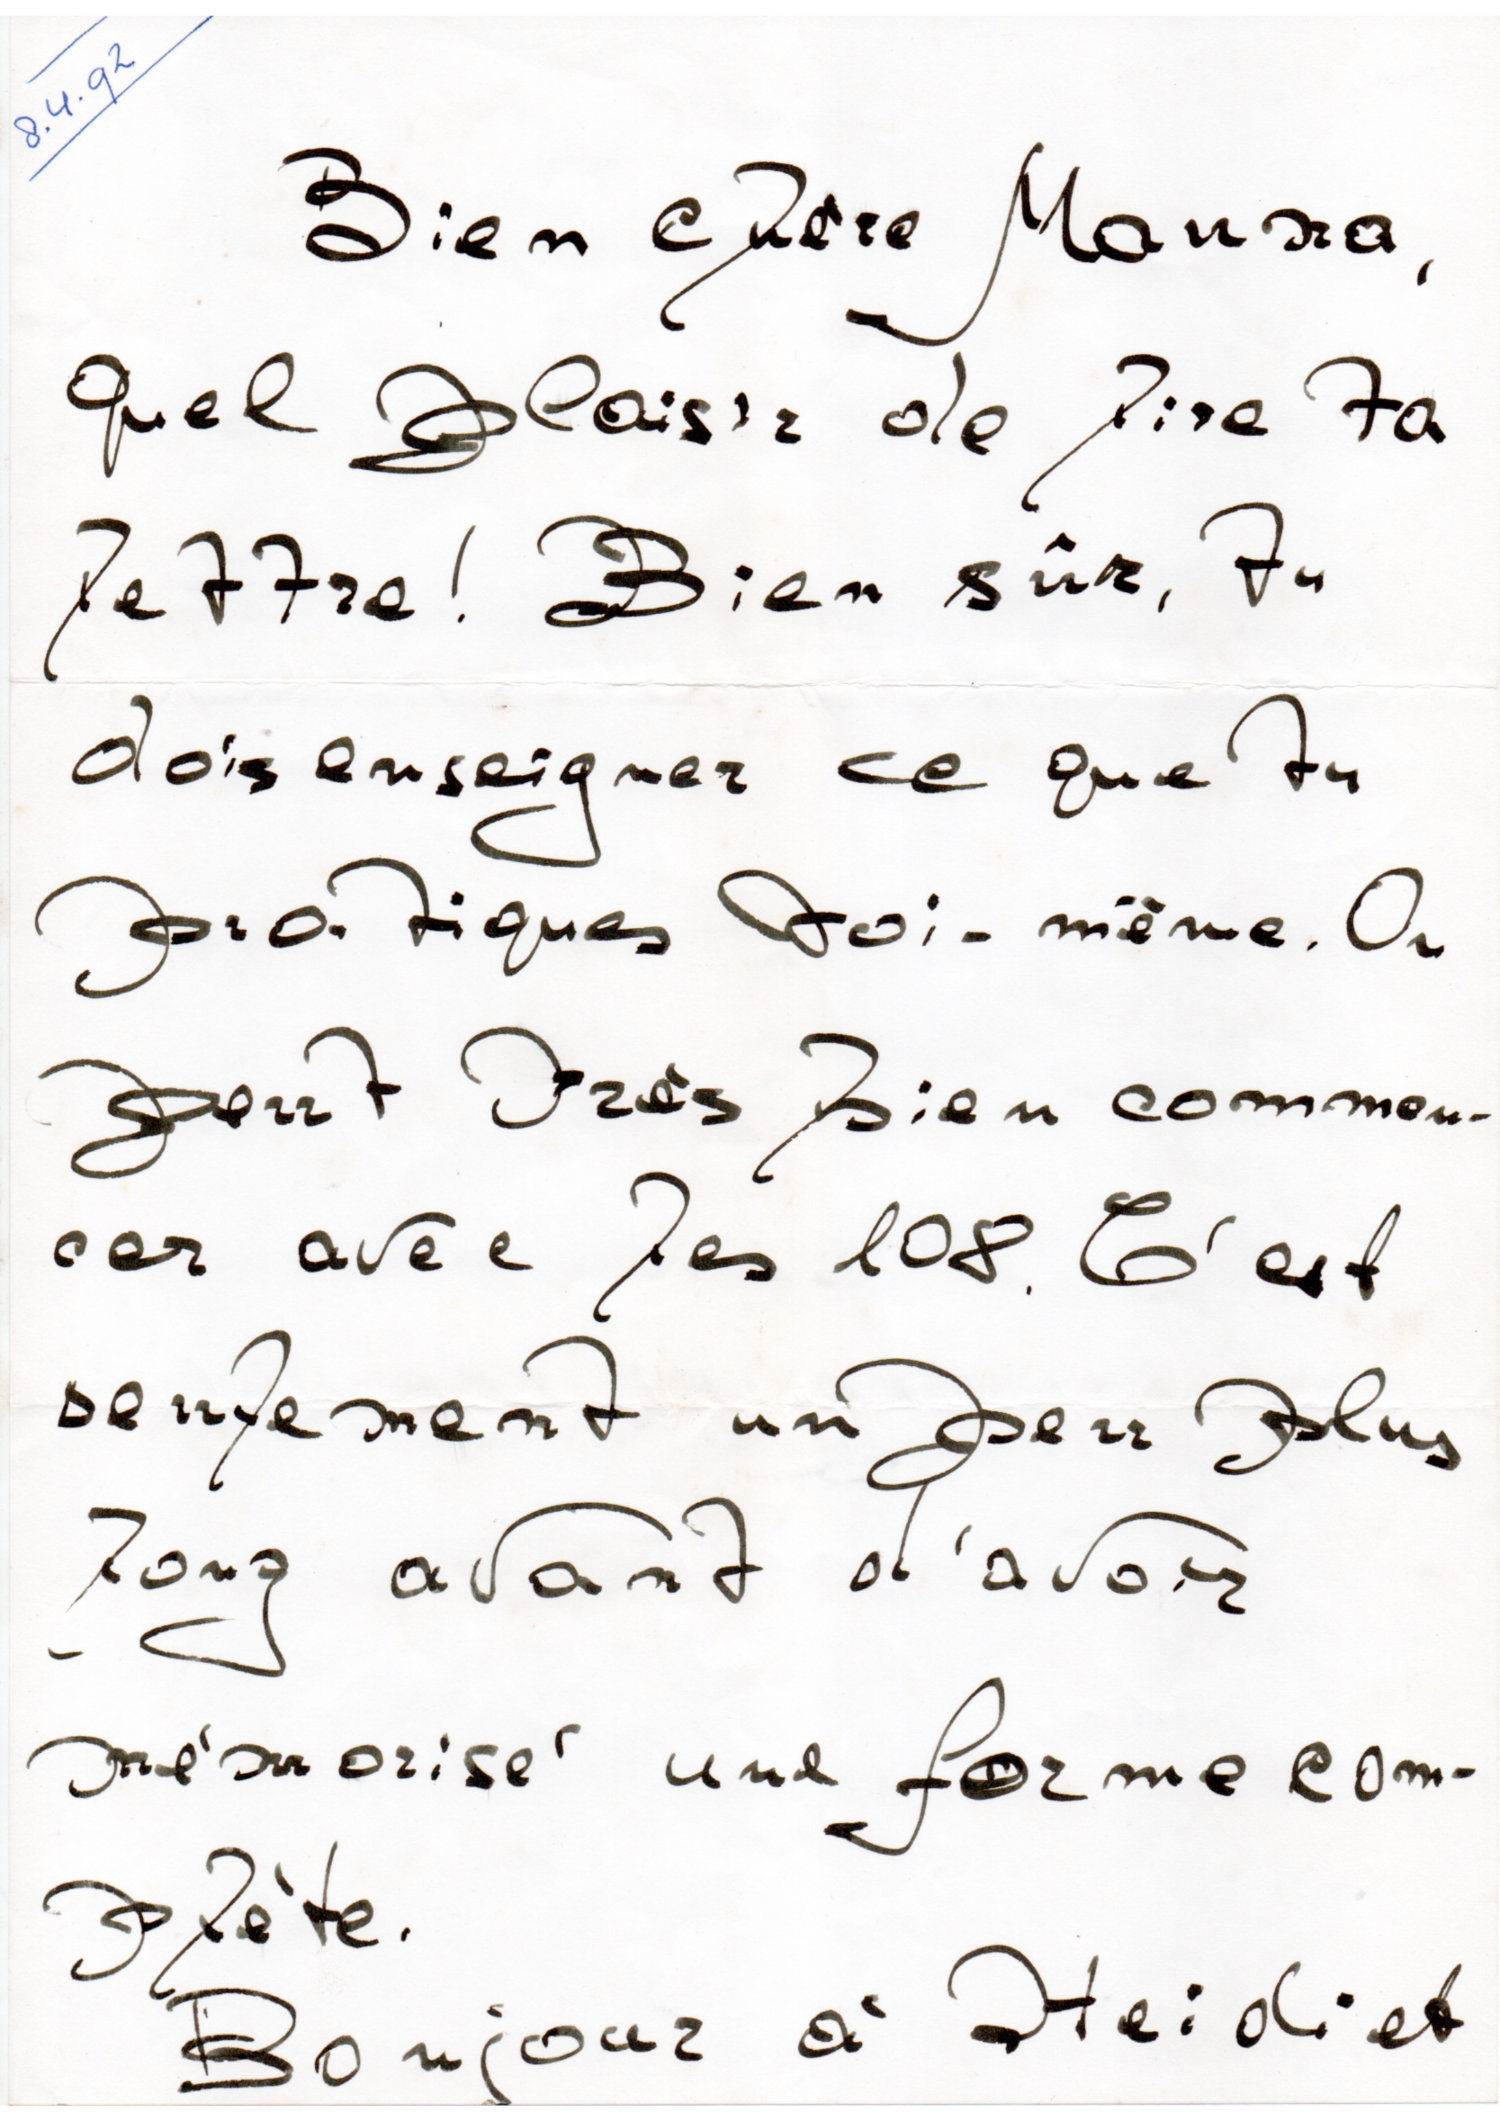 8.4.92
Bien chère Manna,
quel plaisir de lire ta
lettre! Bien sûr, tu
dois enseigner ce que tu
pratiques toi-même. On
peut très bien commen-
cer avec les 108. C'est
seulement un peu plus
long avant d'avoir
mémorisé une forme com-
plète.
Bonjour à Heidi et